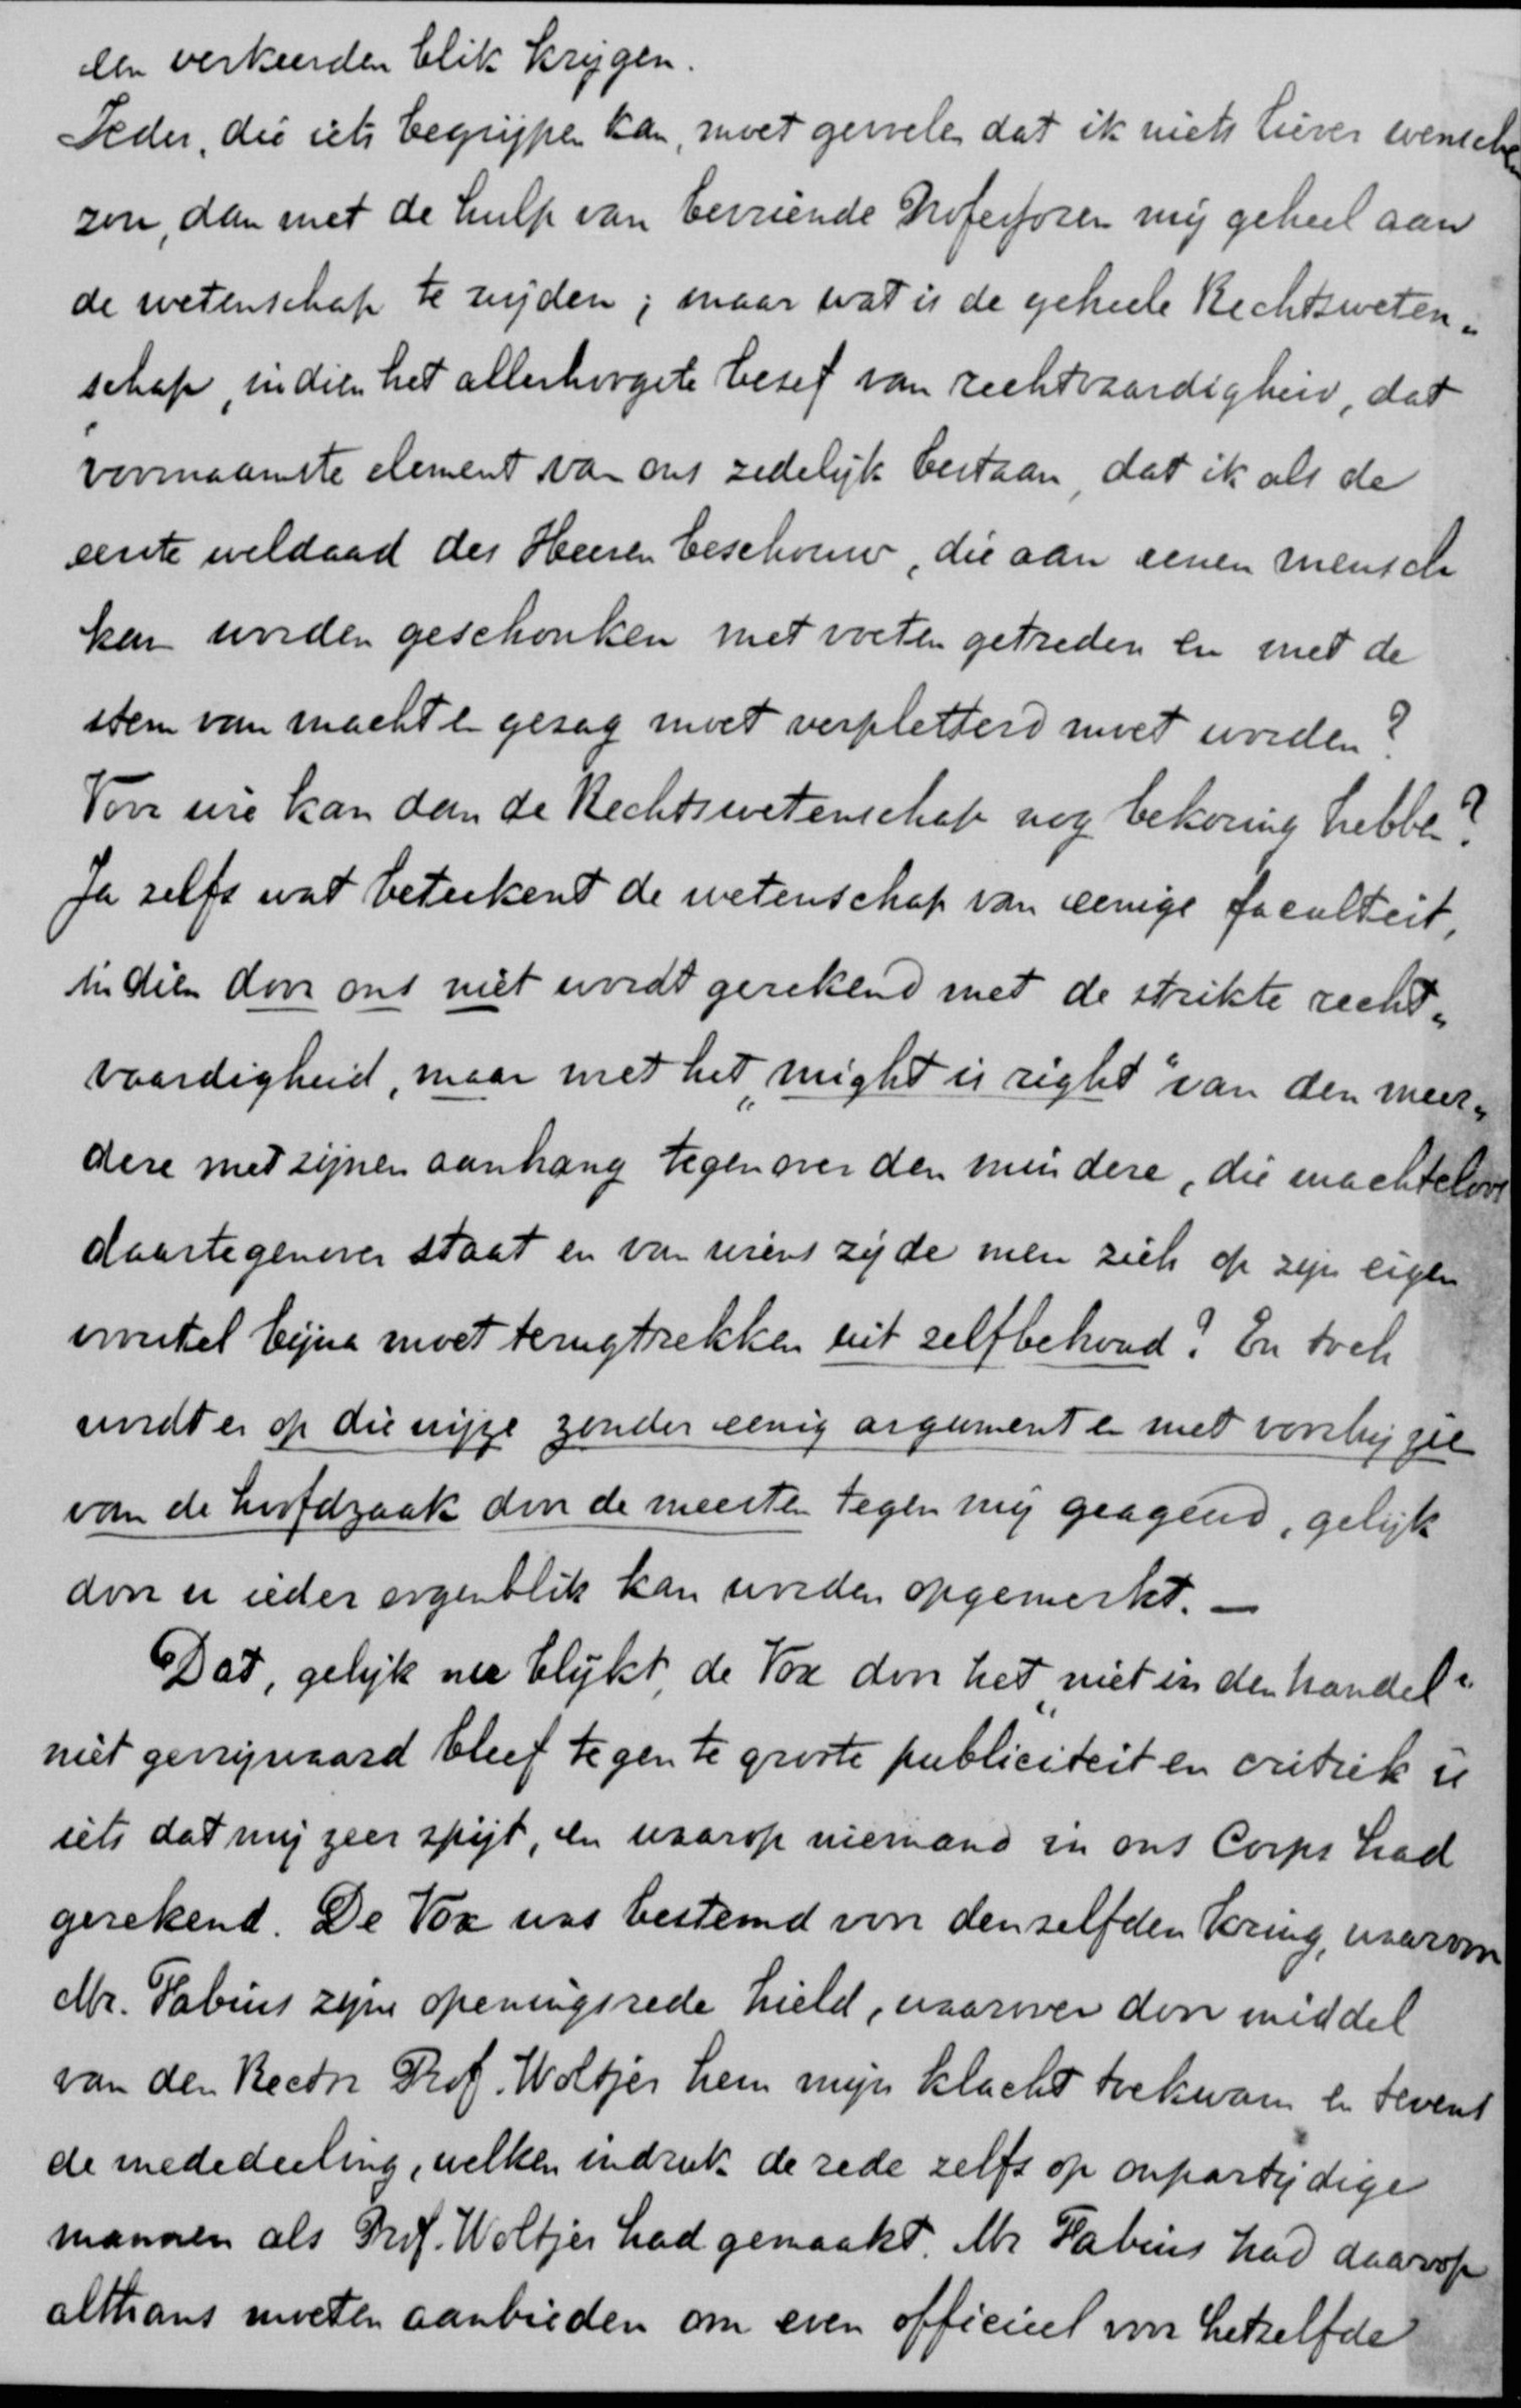 een verkeerden blik krijgen.
Ieder, die iets begrijpen kan, moet gevoelen dat ik niets liever wenschen
zou, dan met de hulp van bevriende Professoren mij geheel aan
de wetenschap te wijden; maar wat is de geheele Rechtsweten„
schap, indien het allerhoogste besef van rechtvaardigheid, dat
voornaamste element van ons zedelijk bestaan, dat ik als de
eerste weldaad des Heeren beschouw, die aan eenen mensch
kan worden geschonken met voeten getreden en met de
stem van macht en gezag moet verpletterd moet worden?
Voor wie kan dan de Rechtswetenschap nog bekoring hebben?
Ja zelfs wat beteekent de wetenschap van eenige faculteit,
indien door ons niet wordt gerekend met de strikte recht„
vaardigheid, maar met het „might is right" van den meer„
dere met zijnen aanhang tegenover den mindere, die machteloos
daartegenover staat en van wiens zijde men zich op zijn eigen
wortel bijna moet terugtrekken uit zelfbehoud? En toch
wordt er op die wijze zonder eenig argument en met voorbijzien
van de hoofdzaak door de meesten tegen mij geageerd, gelijk
door u ieder oogenblik kan worden opgemerkt. —
Dat, gelijk nu blijkt, de Vox door het „niet in den handel"
niet gevrijwaard bleef tegen te groote publiciteit en critiek is
iets dat mij zeer spijt, en waarop niemand in ons Corps had
gerekend. De Vox was bestemd voor denzelfden kring, waarvoor
Mr. Fabius zijne openingsrede hield, waarover door middel
van den Rector Prof. Woltjer hem mijn klacht toekwam en tevens
de mededeeling, welken indruk de rede zelfs op onpartijdige
mannen als Prof. Woltjer had gemaakt. Mr Fabius had daarop
althans moeten aanbieden om even officieel voor hetzelfde